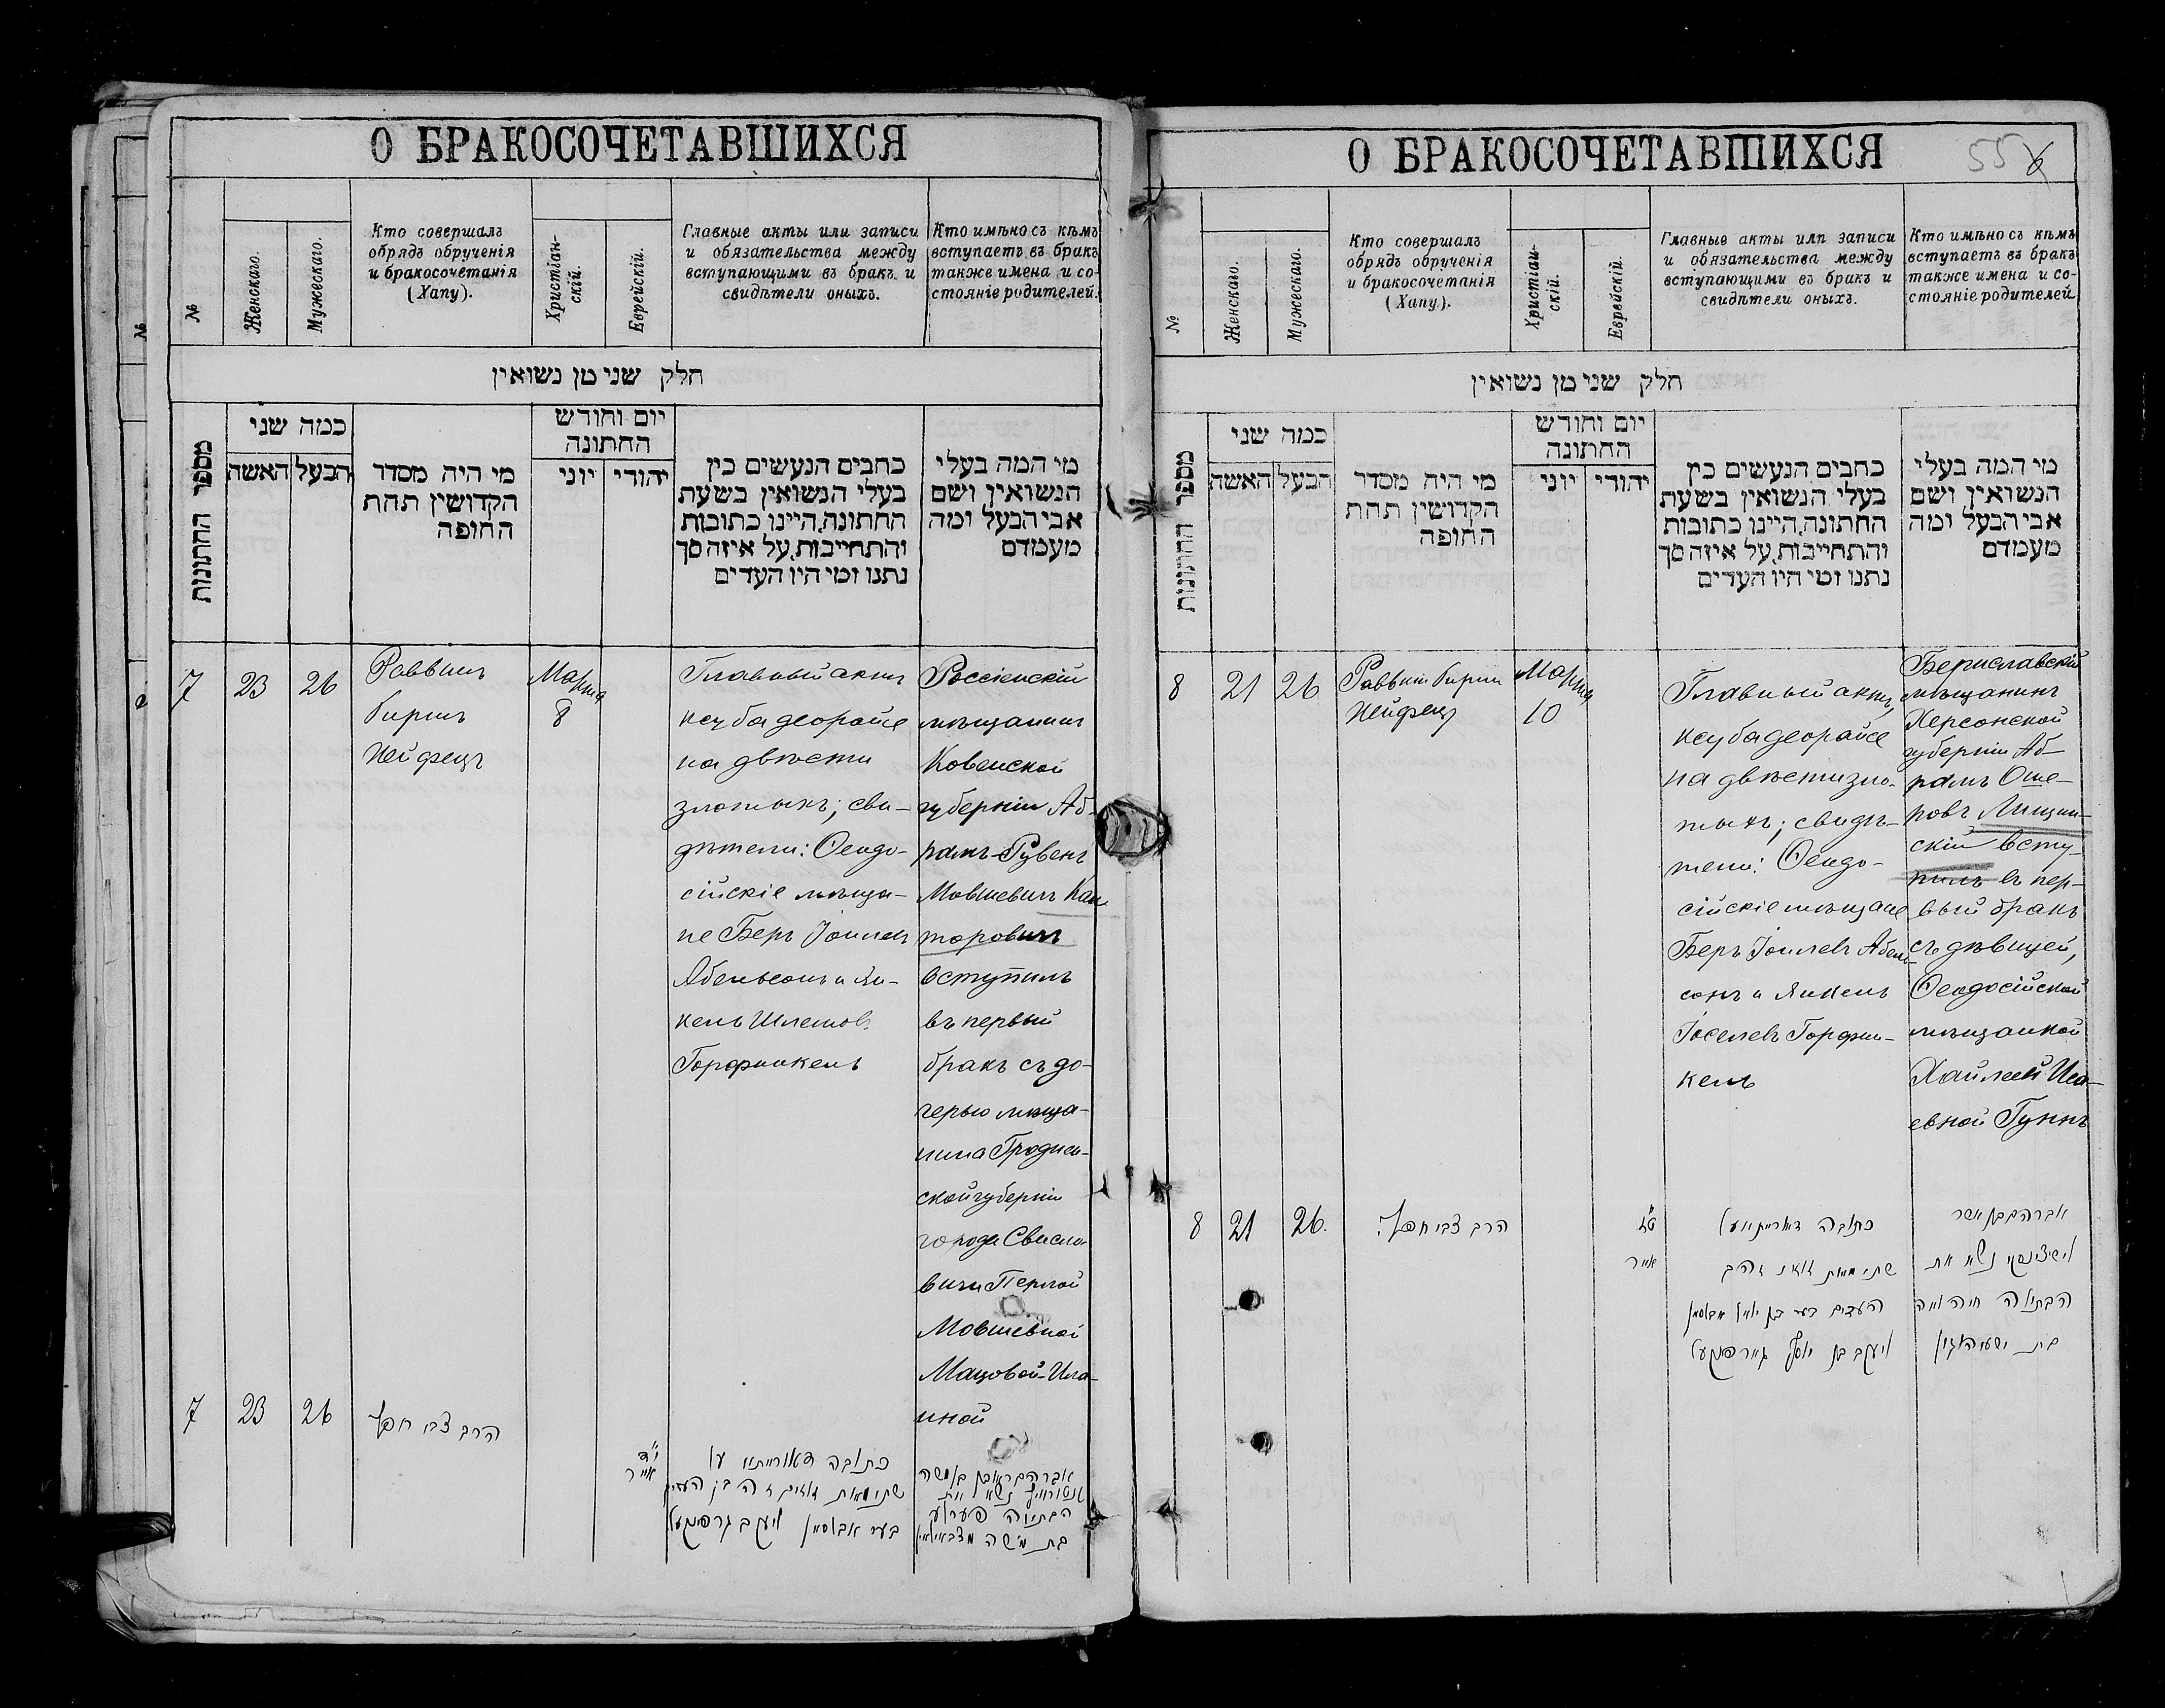 О БРАКОСОЧЕТАВШИХСЯ
№
Женскаго.
Мужескаго.
Кто совершалъ
обрядъ обрученія
и бракосочетанія
(Хапу).
Христіан-
скій.
Еврейскій.
Главные акты или записи
и обязательства между
вступающими въ бракъ и
свидѣтели оныхъ.
Кто имѣно съ кѣмъ
вступаетъ въ бракъ
также имена и со-
стояніе родителей.
חלק שני מן נשואין
מספר החתונות
כמה שני
האשה
הבעל
מי היה מסדר
הקדושין תחת
החופה
יום וחודש
החתונה
יוני
יהודי
כתבים הנעשים בין
בעלי הנשואין בשעת
החתונה, היינו כתובות
והתחייבות, על איזה סך
נתנו ומי היו העדים
מי המה בעלי
הנשואין ושם
אבי הבעל ומה
מעמדם
7
23
26
Раввинъ
Гиршъ
Хейфецъ
Марта
8
Главный актъ
ксуба деорайсе
на двѣсти
злотыхъ; сви-
дѣтели: Ѳеодо-
сійскіе мѣща-
не Беръ Іоилевъ
Абельсонъ и Ян-
кель
Горфинкель
Россіенскій
мѣщанинъ
Ковенской
губерніи Аб-
рамъ-Рувенъ
Мовшевичъ Кан
торовичъ
вступилъ
въ первый
бракъ съ до-
черью мѣща-
нина Гроднен-
ской губерніи
города Свисло-
вичи Перлой
Мовшевной
Мацовой-
иной
7
23
26
הרב צבי חפץ
י״ד
אייר
כתובה דאורייתא על
שתי מאות זוזים
בער אבעלסאן
אברהם ראובן בן משה
קנטוראוויץ נשא את
הבתולה פערלע
בת משה
О БРАКОСОЧЕТАВШИХСЯ
55
№
Женскаго.
Мужескаго.
Кто совершалъ
обрядъ обрученія
и бракосочетанія
(Хапу).
Христіан-
скій.
Еврейскій.
Главные акты или записи
и обязательства между
вступающими въ бракъ и
свидѣтели оныхъ.
Кто имѣно съ кѣмъ
вступаетъ въ бракъ
также имена и со-
стояніе родителей
חלק שני מן נשואין
מספר החתונות
כמה שני
האשה
הבעל
מי היה מסדר
הקדושין תחת
החופה
יום וחודש
החתונה
יוני
יהודי
כתבים הנעשים בין
בעלי הנשואין בשעת
החתונה, היינו כתובות
והתחייבות, על איזה סך
נתנו ומי היו העדים
מי המה בעלי
הנשואין ושם
אבי הבעל ומה
מעמדם
8
21
26
Раввинъ Гиршъ
Хейфецъ
Марта
10
Главный актъ,
ксуба деорайсе
на двѣсти зло-
тыхъ; свидѣ-
тели: Ѳеодо-
сійскіе мѣщане
Беръ Іоилевъ Абель-
сонъ и Янкель
Іоселевъ Горфин-
кель
Бериславскій
мѣщанинъ
Херсонской
губерніи Аб-
рамъ Оше-
ровъ Лищин-
скій всту-
пилъ въ пер-
вый бракъ
съ дѣвицей,
Ѳеодосійской
мѣщанкой
Иса-
евной Гуннъ
8
21
26.
הרב צבי חפץ
אייר
כתובה דאורייתא על
שתי מאות זוזי זהב
העדים בער בן יואל אבעלסאן
ויעקב בן יוסף גארפינקעל
אברהם בן אשר
לישצינסקי נשא את
הבתולה
בת